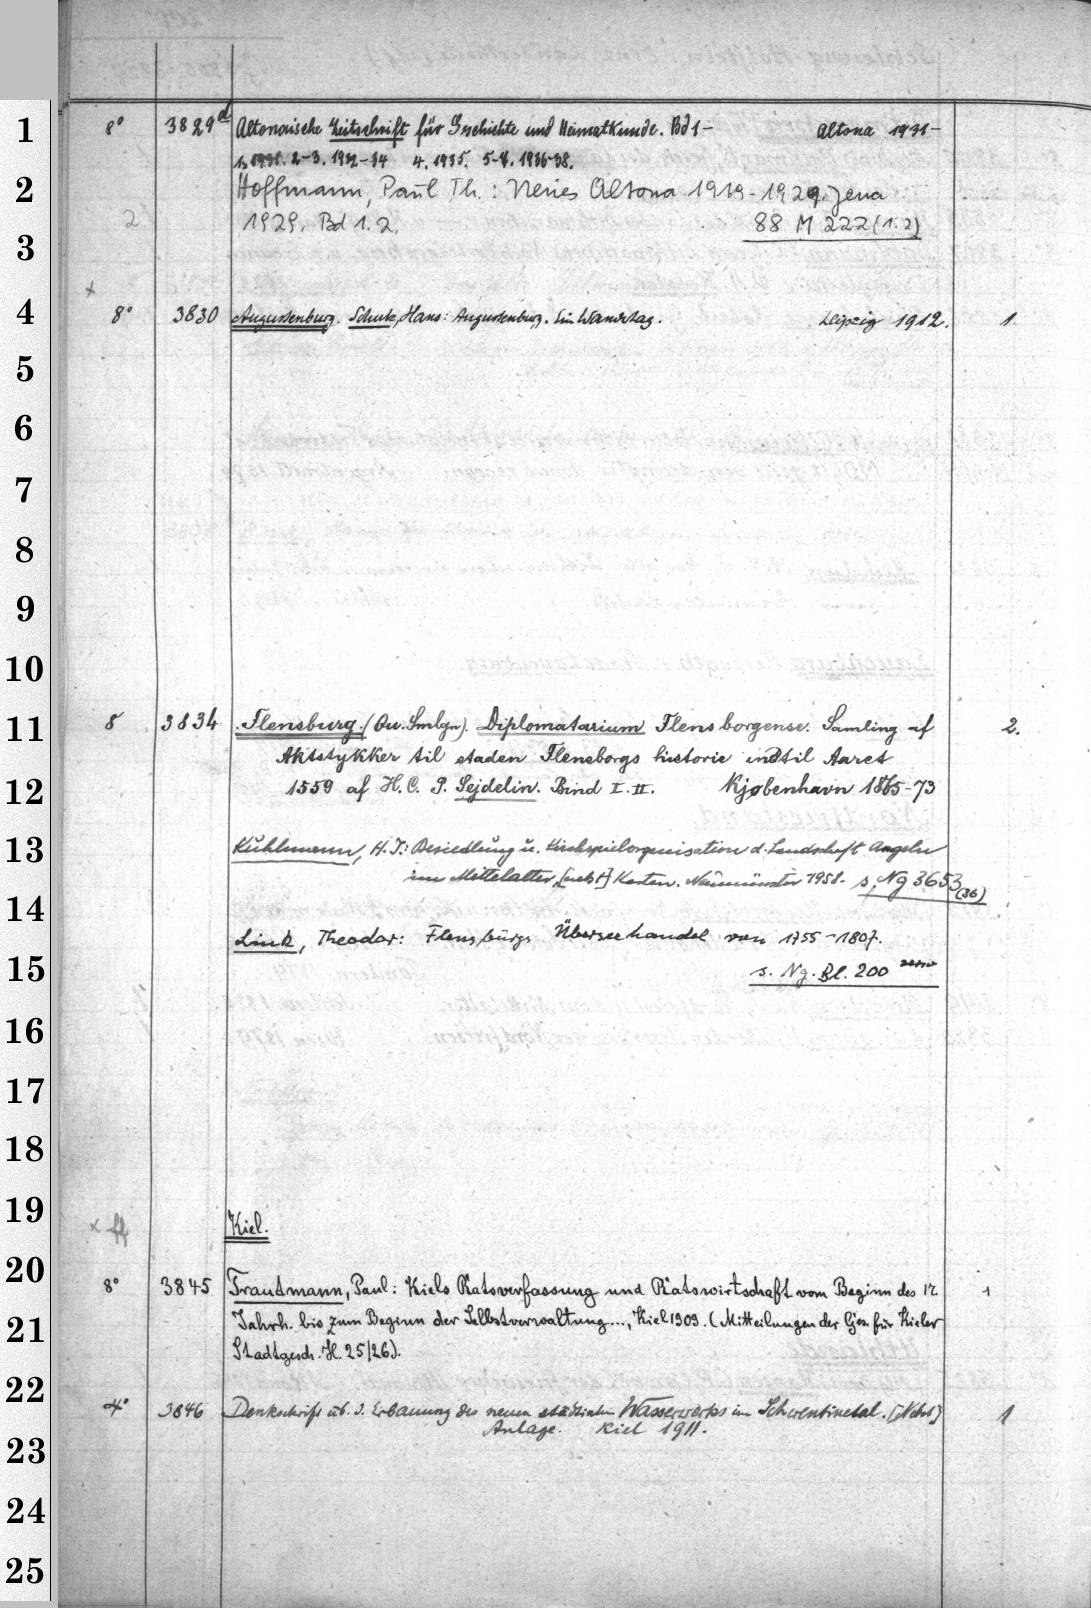 1 8° 3829d Altonaische Zeitschrift für Geschichte und Heimatkunde. Bd 1- Altona 1931-
1. 1931. 2-3. 1932-34 4. 1935. 5-8. 1936-38.
2 Hoffmann, Paul Th.: Neues Altona 1919-1929. Jena
2 1929. Bd 1. 2. 88 M 222 (1.2)
3
x
4 8° 3830 Augustenburg. Schulz, Hans: Augustenburg. Ein Wandertag. Leipzig 1912. 1
5
6
7
8
9
10
11 8 3834 Flensburg. (Qu. Smlgn). Diplomatarium Flensborgense. Samling af 2.
Aktstykker til staden Flensborgs historie indtil Aaret
12 1559 af H. C. P. Sejdelin. Bind I. II. Kjøbenhavn 1865-73
13 Kuhlmann, H. J.: Besiedlung u. Kirchspielorganisation d. Landschaft Angeln
im Mittelalter, [nebst] Karten. Neumünster 1958. s. Ng 3653 (36)
14
Link, Theodor: Flensburgs Überseehandel von 1755-1807.
15 s. Ng. Bl. 200
16
17
18
19 x ff Kiel.
20 8° 3845 Trautmann, Paul: Kiels Ratsverfassung und Ratswirtschaft vom Beginn des 17. 1
21 Jahrh. bis zum Beginn der Selbstverwaltung..., Kiel 1909. (Mitteilungen der Ges. für Kieler
Stadtgesch. H. 25/26).
22 4° 3846 Denkschrift üb. d. Erbauung des neuen städtischen Wasserwerks im Schwentinetal. [Nebst] 1
Anlage. Kiel 1911.
23
24
25